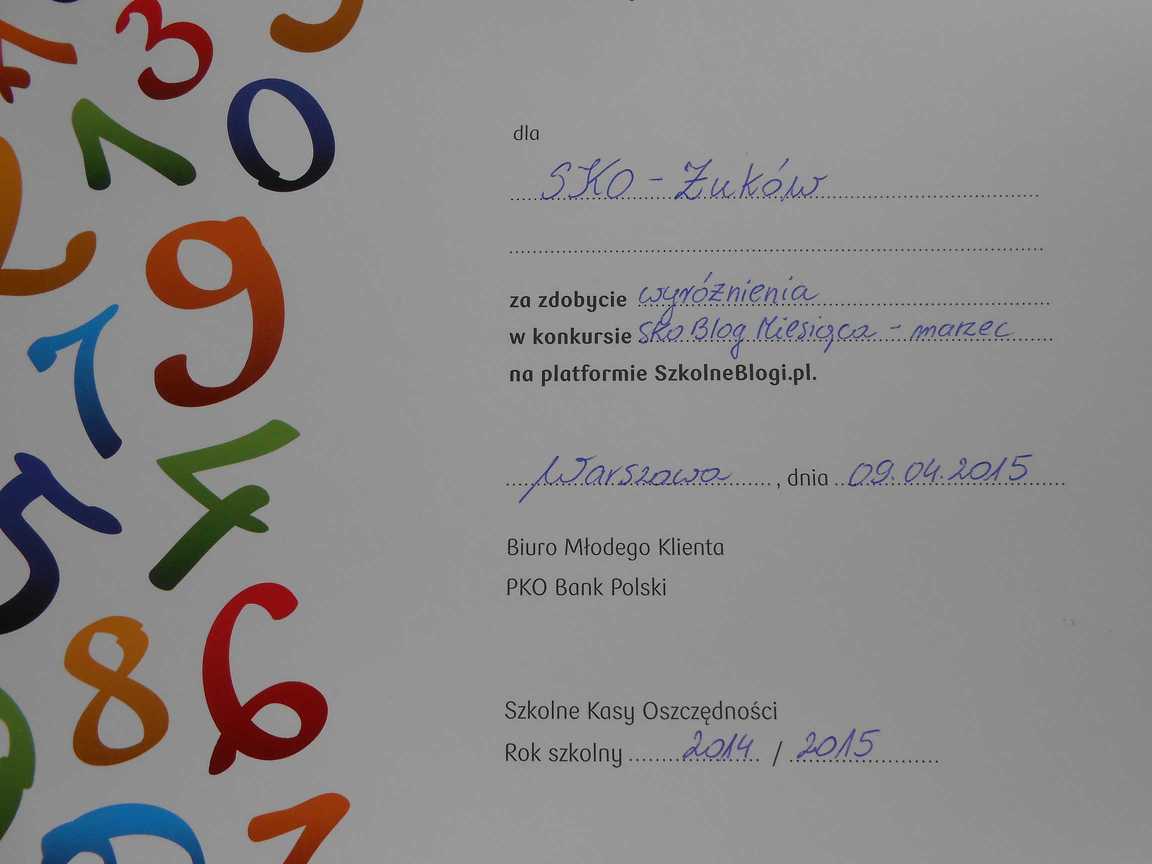 dla
SKO - Żuków
za zdobycie wyróżnienia
w konkursie SKO Blog Miesiąca - marzec
na platformie SzkolneBlogi.pl.
Warszawa, dnia 09.04.2015
Biuro Młodego Klienta
PKO Bank Polski
Szkolne Kasy Oszczędności
Rok szkolny 2014 / 2015
3
1
0
2
9
7
4
5
8
6